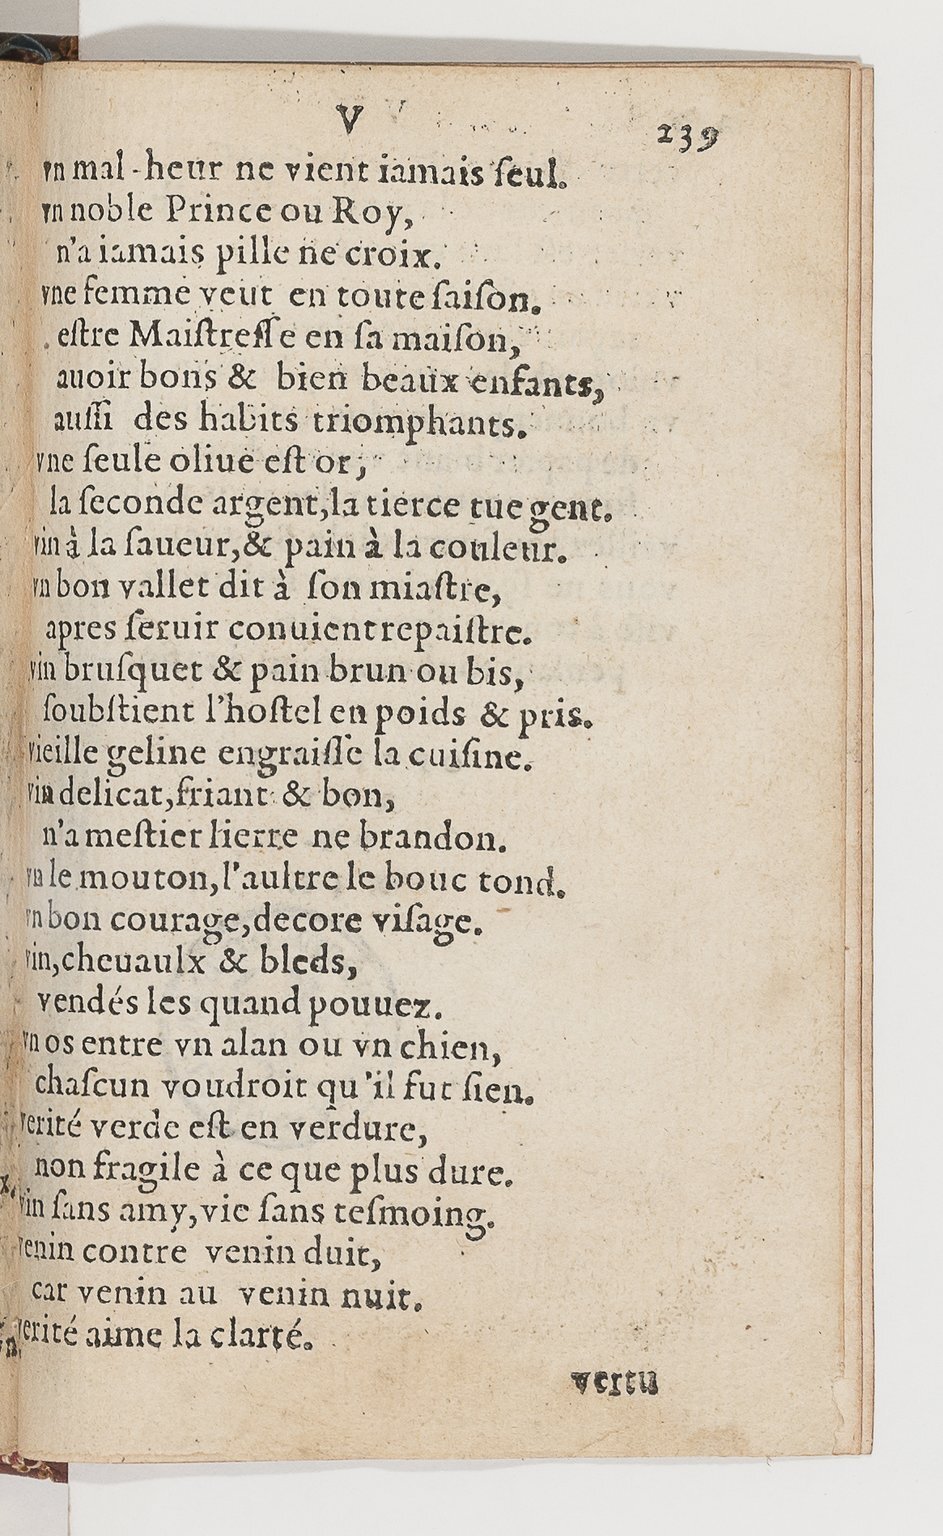 V
239
vn mal-heur ne vient iamais ſeul.
vn noble Prince ou Roy,
n'a iamais pille ne croix.
vne femme veut en toute ſaiſon.
eſtre Maiſtreſſe en ſa maiſon,
auoir bons & bien beaux enfants,
auſſi des habits triomphants.
vne ſeule oliue eſt or,
la ſeconde argent, la tierce tue gent.
vin à la ſaueur, & pain à la couleur.
vn bon vallet dit à ſon miaſtre,
apres ſeruir conuient repaiſtre.
vin bruſquet & pain brun ou bis,
ſoubſtient l'hoſtel en poids & pris.
vieille geline engraiſſe la cuiſine.
vin delicat, friant & bon,
n'a meſtier lierre ne brandon.
vn le mouton, l'aultre le bouc tond.
vn bon courage, decore viſage.
vin, cheuaulx & bleds,
vendés les quand pouuez.
vn os entre vn alan ou vn chien,
chaſcun voudroit qu'il fut ſien.
verité verde eſt en verdure,
non fragile à ce que plus dure.
vin ſans amy, vie ſans teſmoing.
venin contre venin duit,
car venin au venin nuit.
verité aime la clarté.
vertu